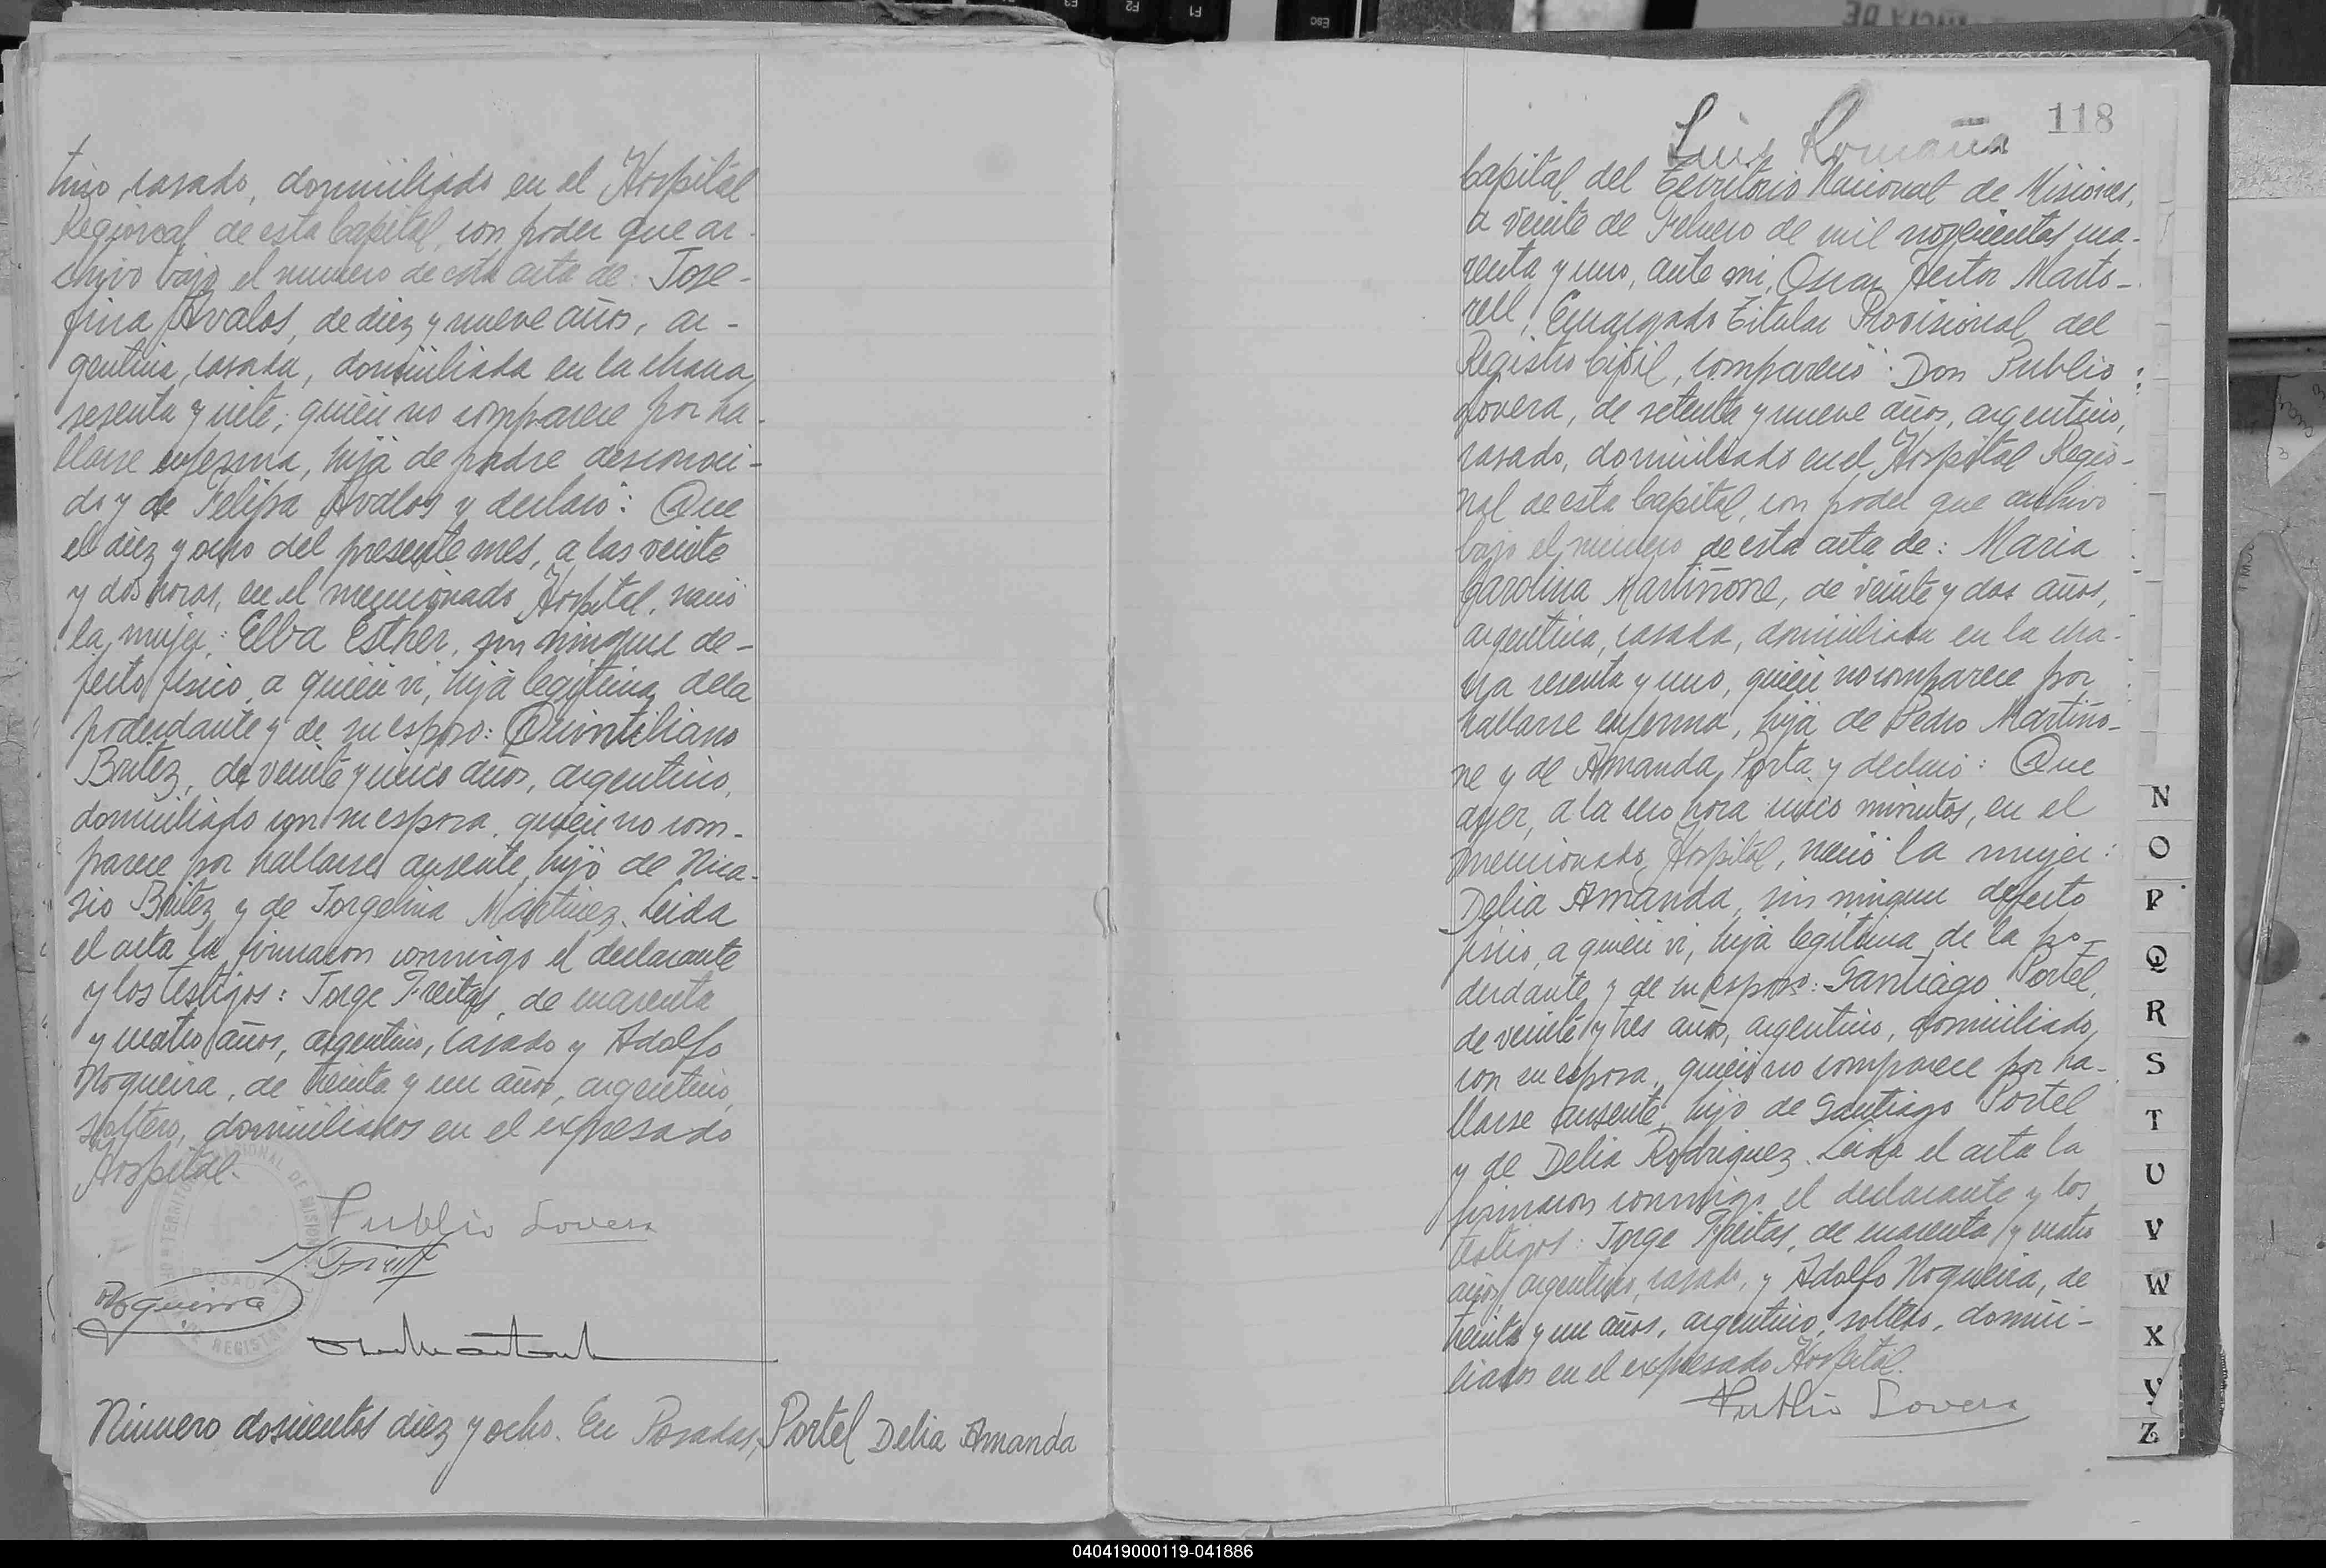 tino, casado, domiciliado en el Hospital
Regional de esta Capital, con poder que ar-
chivo bajo el numero de esta acta de: Jose-
fina Avalos, de diez y nueve años, ar-
gentina, casada, domiciliada en la chacra
sesenta y siete, quien no comparece por ha-
llarse enferma, hija de padre desconoci-
do y de Felipa Avalos y declaró: Que
el diez y ocho del presente mes, a las veinte
y dos horas, en el mencionado Hospital, nació
la mujer: Elba Esther, sin ningun de-
fecto fisico, a quien vi, hija legitima de la
poderdante y de su esposo: Quintiliano
Britez, de veinte y cinco años, argentino,
domiciliado con su esposa, quien no com-
parece por hallarse ausente, hijo de Nica-
sio Britez y de Jorgelina Martinez. Leida
el acta la firmaron conmigo el declarante
y los testigos: Jorge Freitas, de cuarenta
y cuatro años, argentino, casado y Adolfo
Noqueira, de treinta y un años, argentino,
soltero, domiciliados en el expresado
Hospital.
Publio Lovera
Noqueira
TERRITORIO NACIONAL DE MISIONES
POSADAS
REGISTRO
Número doscientos diez y ocho. En Posadas,
Portel Delia Amanda
118
Luis Romaña
Capital del Territorio Nacional de Misiones,
a veinte de Febrero de mil novecientos cua-
renta y uno, ante mi, Oscar Hector Marto-
rell, Encargado Titular Provisional del
Registro Civil, compareció: Don Publio
Lovera, de setenta y nueve años, argentino,
casado, domiciliado en el Hospital Regio-
nal de esta Capital, con poder que archivo
bajo el numero de esta acta de: Maria
Carolina Martiñone, de veinte y dos años,
argentina, casada, domiciliada en la cha-
cra sesenta y uno, quien no comparece por
hallarse enferma, hija de Pedro Martiño-
ne y de Amanda Porta y declaró: Que
ayer, a la cero hora cinco minutos, en el
mencionado Hospital, nació la mujer:
Delia Amanda, sin ningun defecto
fisico, a quien vi, hija legitima de la po-
derdante y de su esposo: Santiago Portel,
de veinte y tres años, argentino, domiciliado
con su esposa, quien no comparece por ha-
llarse ausente, hijo de Santiago Portel
y de Delia Rodriguez. Leida el acta la
firmaron conmigo el declarante y los
testigos: Jorge Freitas, de cuarenta y cuatro
años, argentino, casado, y Adolfo Noqueira, de
treinta y un años, argentino, soltero, domici-
liados en el expresado Hospital.
Publio Lovera
N
O
P
Q
R
S
T
U
V
W
X
Y
Z
040419000119-041886